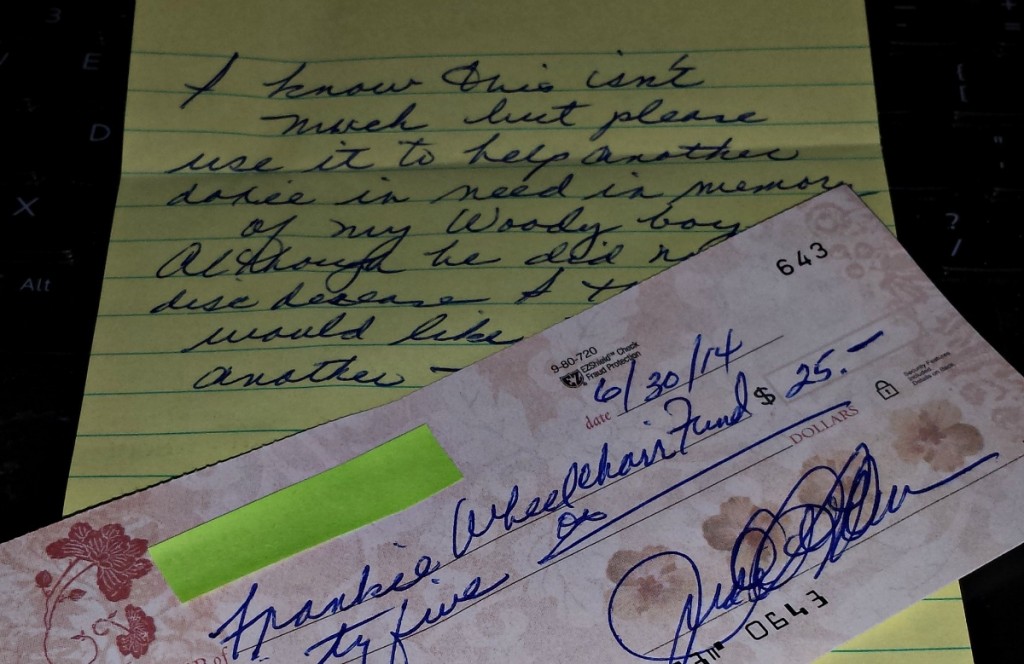 I know this isn't
much but please
use it to help another
doxie in need in memory
of my Woody boy
Although he did
disc disease I
would like
another
643
9-80-720
EZShield™ Check
Fraud Protection
6/30/14
date
Frankie Wheelchair Fund $ 25.-
ty five
DOLLARS
Security Features
Included
Details on Back
0643
E
D
X
Alt
3
?
/